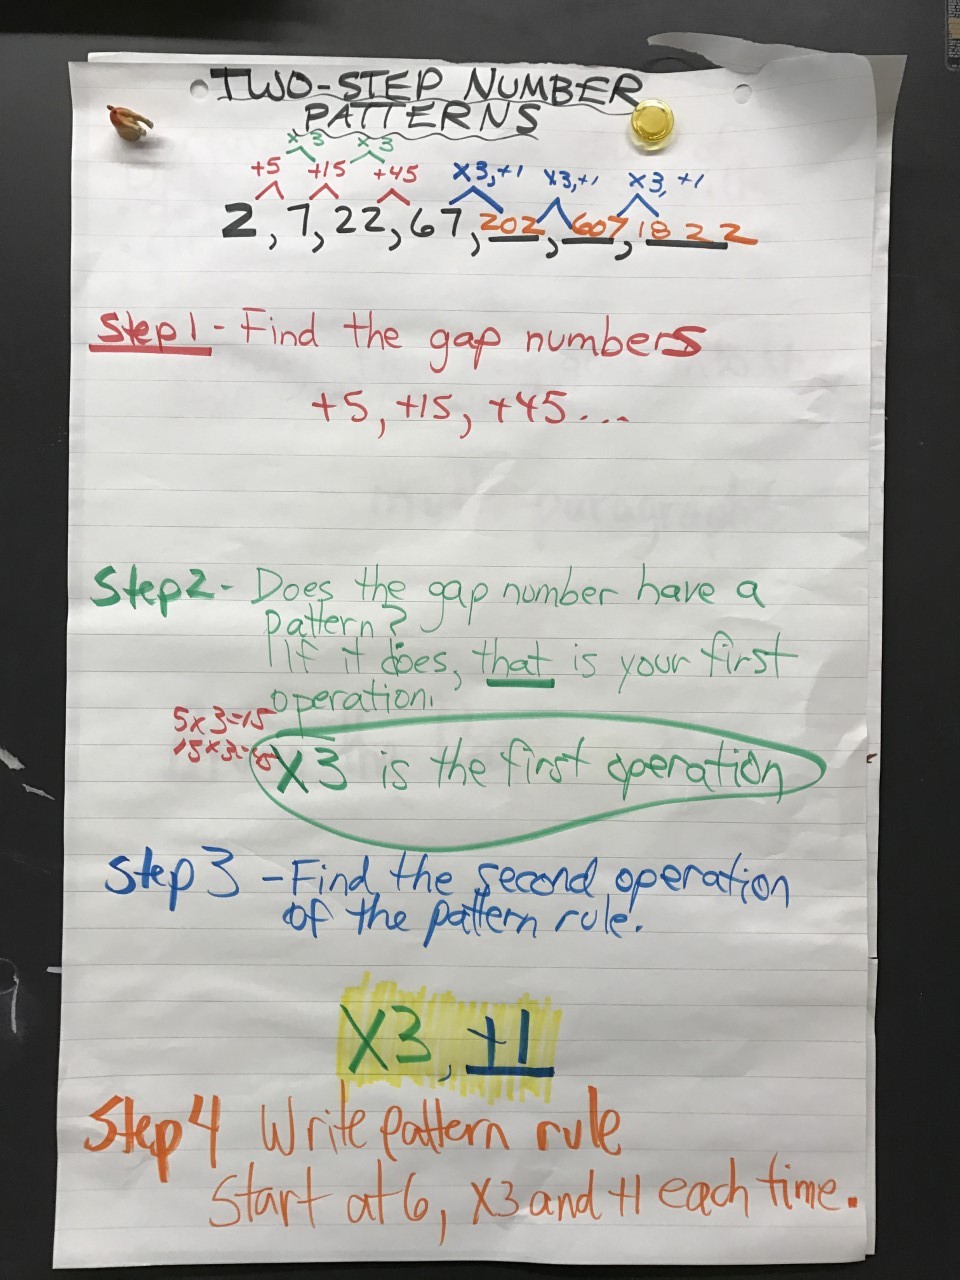 TWO-STEP NUMBER
PATTERNS
x3 x3
+5 +15 +45 x3,+1 x3,+1 x3, +1
2, 7, 22, 67, 202, 607, 1822
Step 1 - Find the gap numbers
+5, +15, +45...
Step 2 - Does the gap number have a
pattern?
If it does, that is your first
operation.
5x3=15
15x3=45
X3 is the first operation
Step 3 - Find the second operation
of the pattern rule.
X3, +1
Step 4 Write pattern rule
Start at 6, X3 and +1 each time.